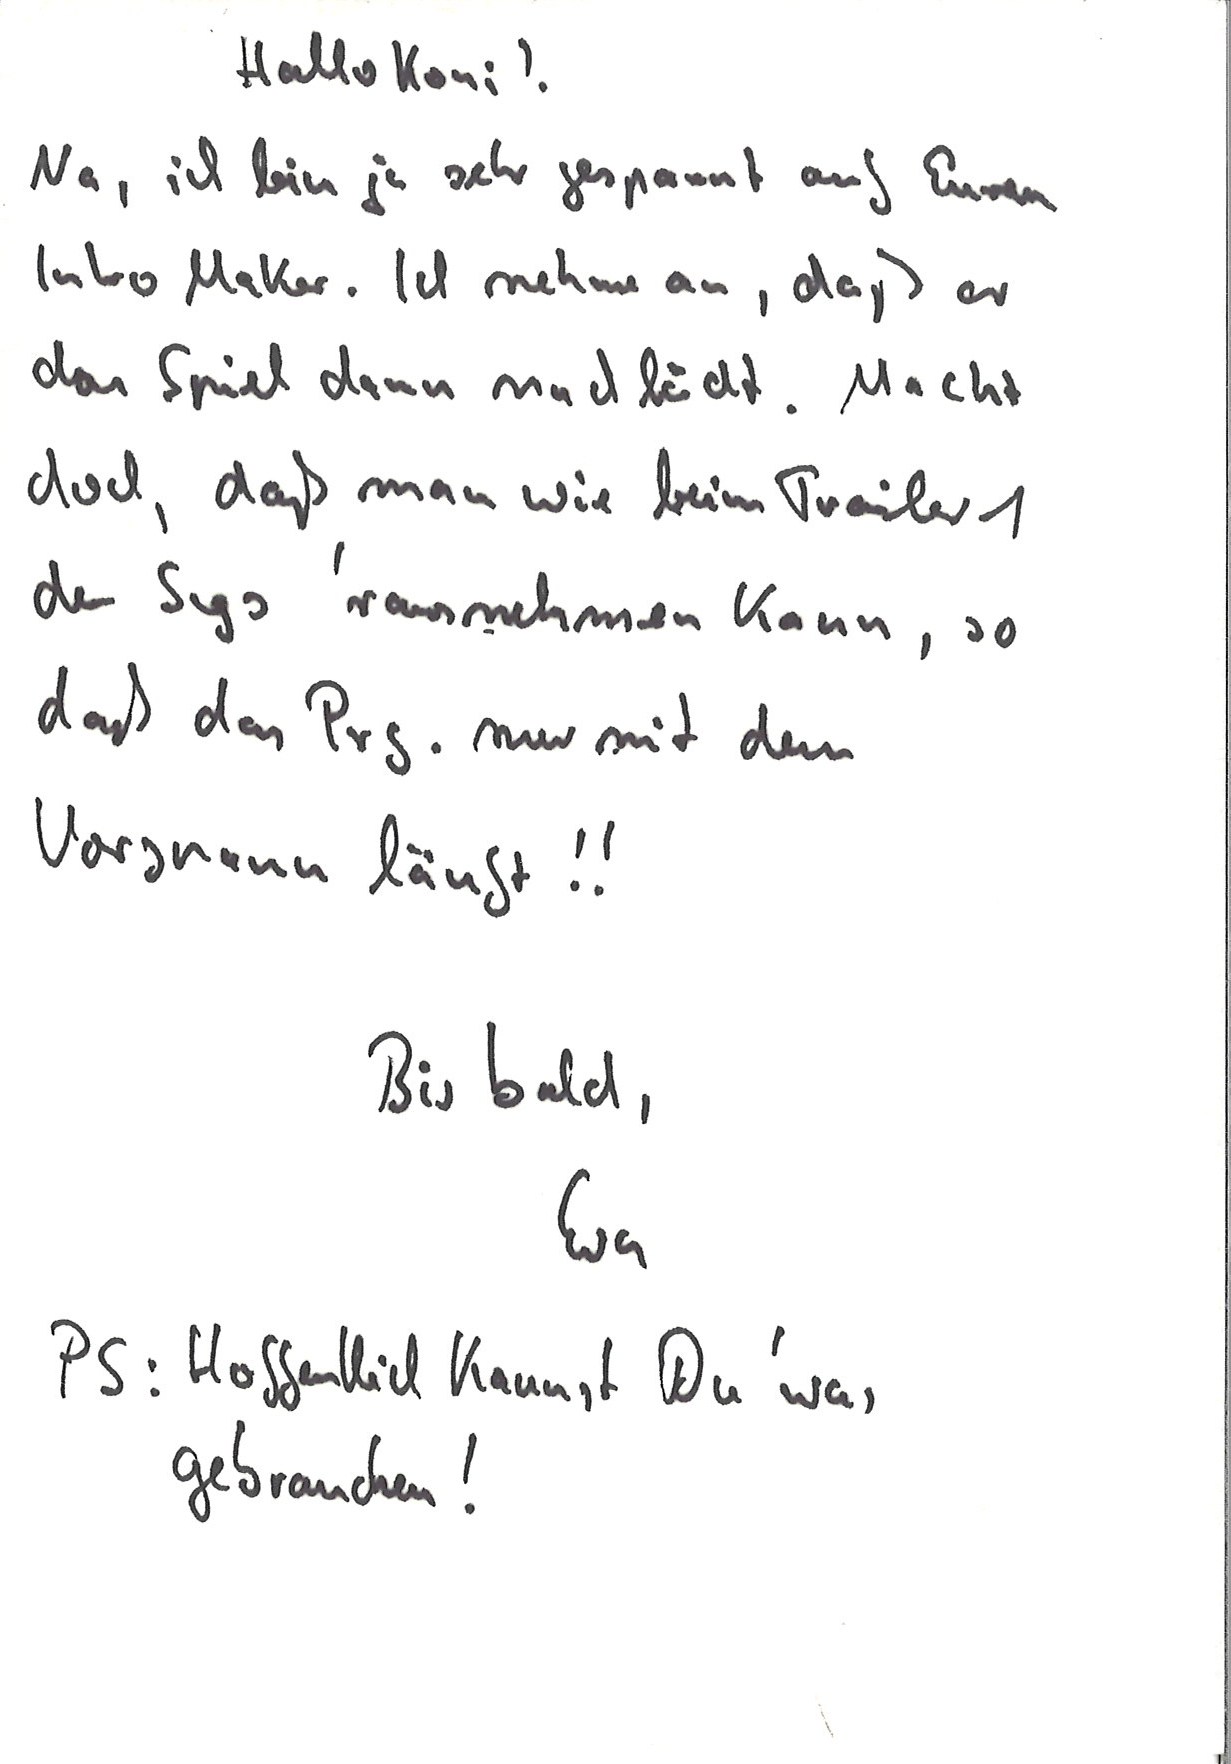 Hallo Koni!
Na, ich bin ja sehr gespannt auf Euren
Intro Maker. Ich nehme an, daß er
das Spiel dann nachlädt. Macht
doch, daß man wie beim Trailer 1
den 'rausnehmen kann, so
daß das Prg. nur mit dem
Vorspann läuft!!
Bis bald,
Eva
PS: Hoffentlich kannst Du 'was
gebrauchen!